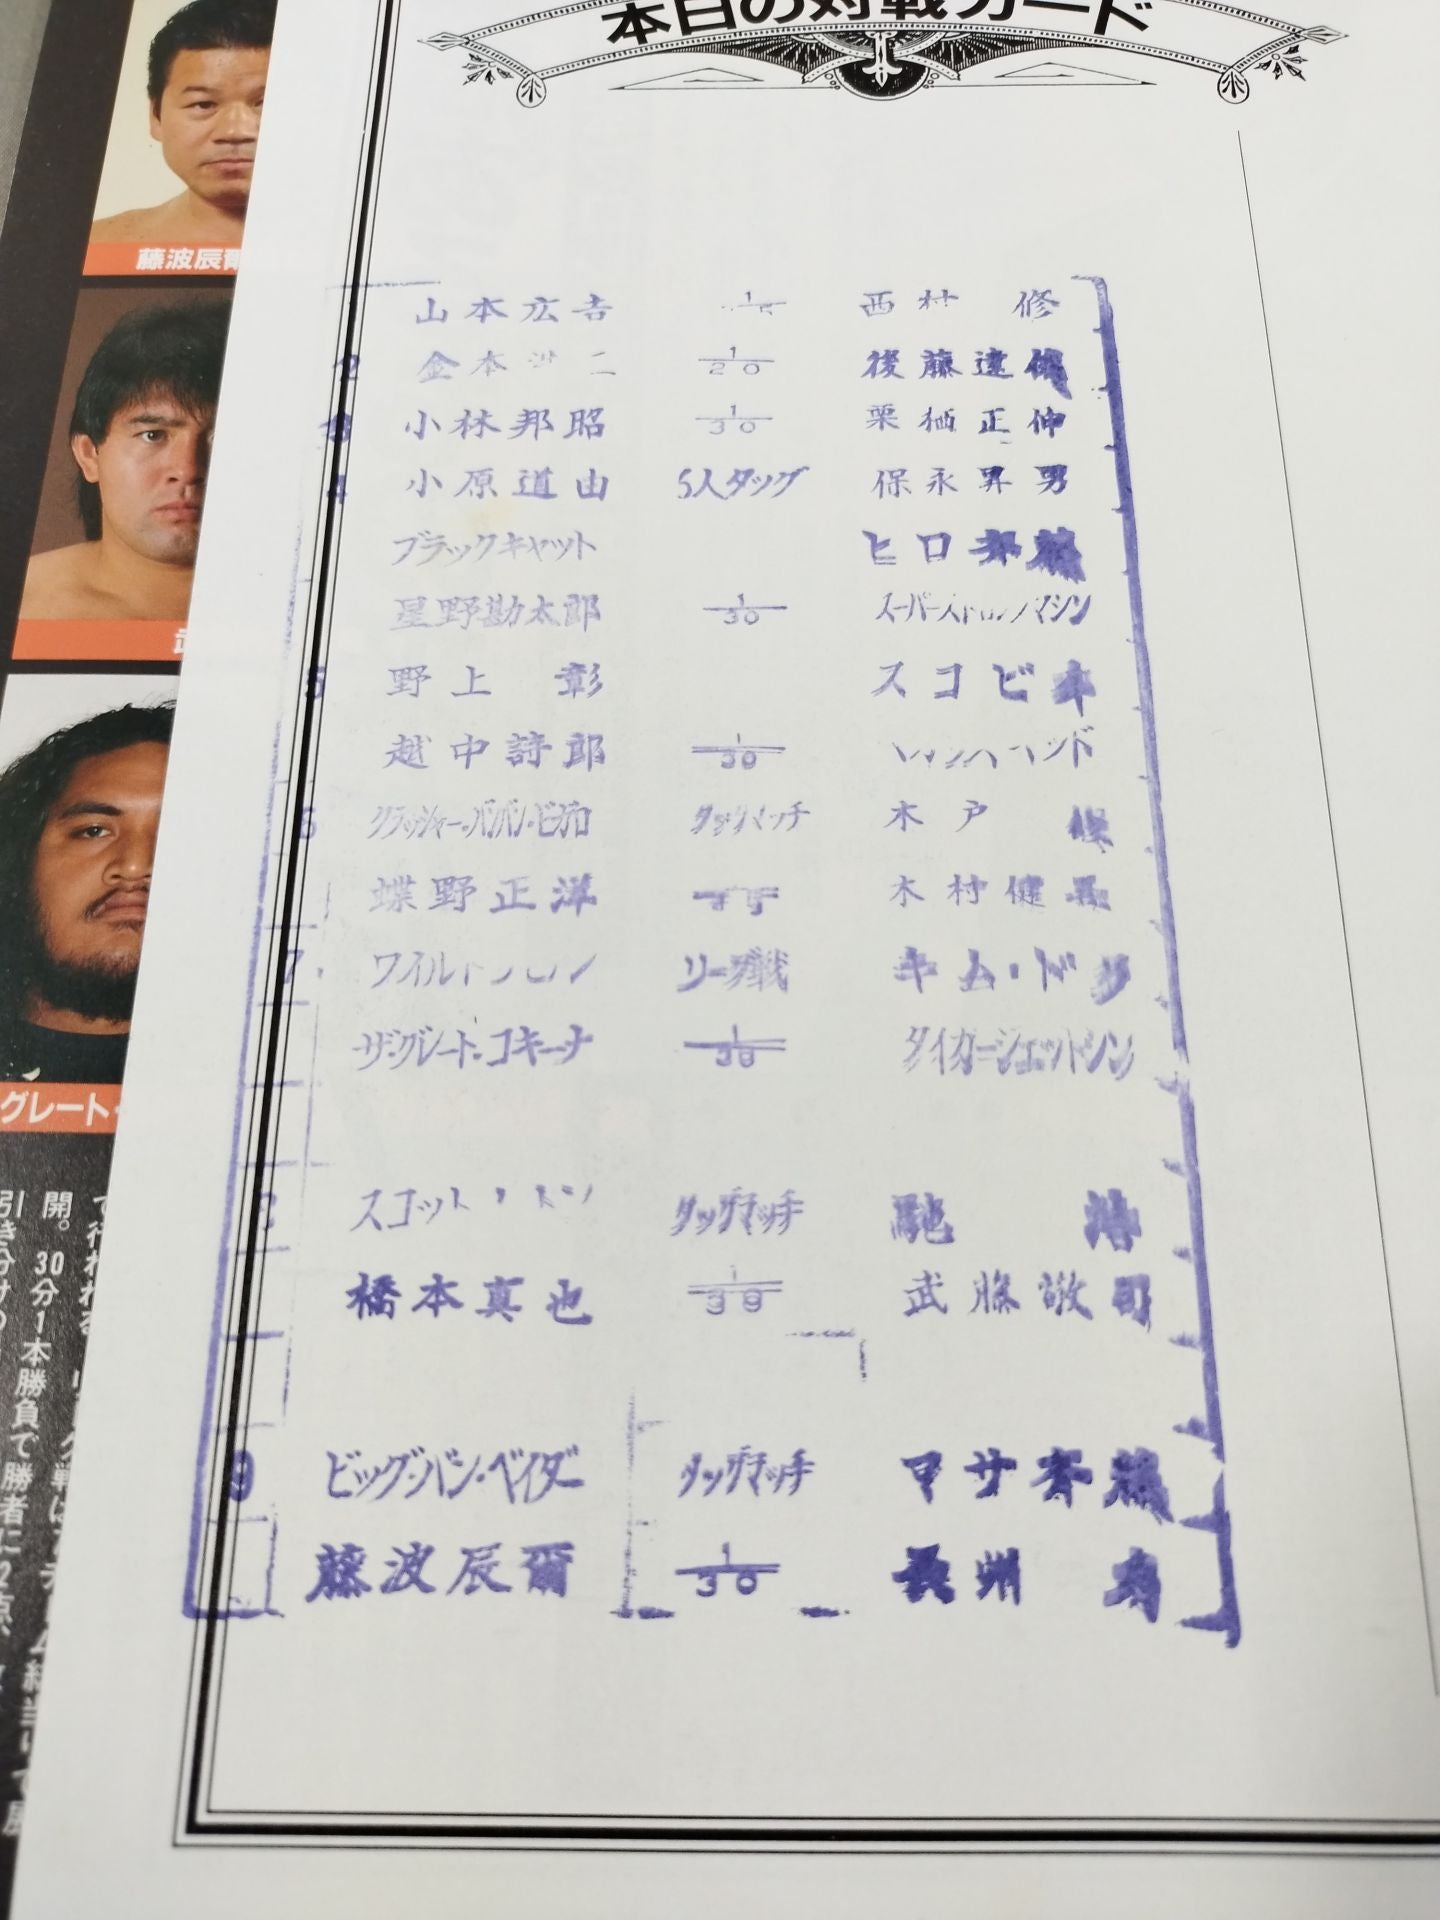 本日の対戦カード
山本広吉 1 西村 修
2 金本 二 1/20 後藤達俊
3 小林邦昭 1/30 栗栖正伸
4 小原道由 6人タッグ 保永昇男
ブラックキャット ヒロ斉藤
星野勘太郎 1/30 スーパーストロングマシン
5 野上 彰 スコビキ
越中詩郎 1/30
6 クラッシャー・バンバン・ビガロ タッグマッチ 木戸 修
蝶野正洋 木村健吾
7 ワイルド リーグ戦 キム・ドク
ザ・グレート・コキーナ 1/30 タイガージェットシン
8 スコット タッグマッチ 馳 浩
橋本真也 1/30 武藤敬司
9 ビッグ・バン・ベイダー タッグマッチ マサ斉藤
藤波辰爾 1/30 長州 力
藤波辰爾
武
グレート・
で行われる
開。30分1本勝負で勝者に2点
引き分けの